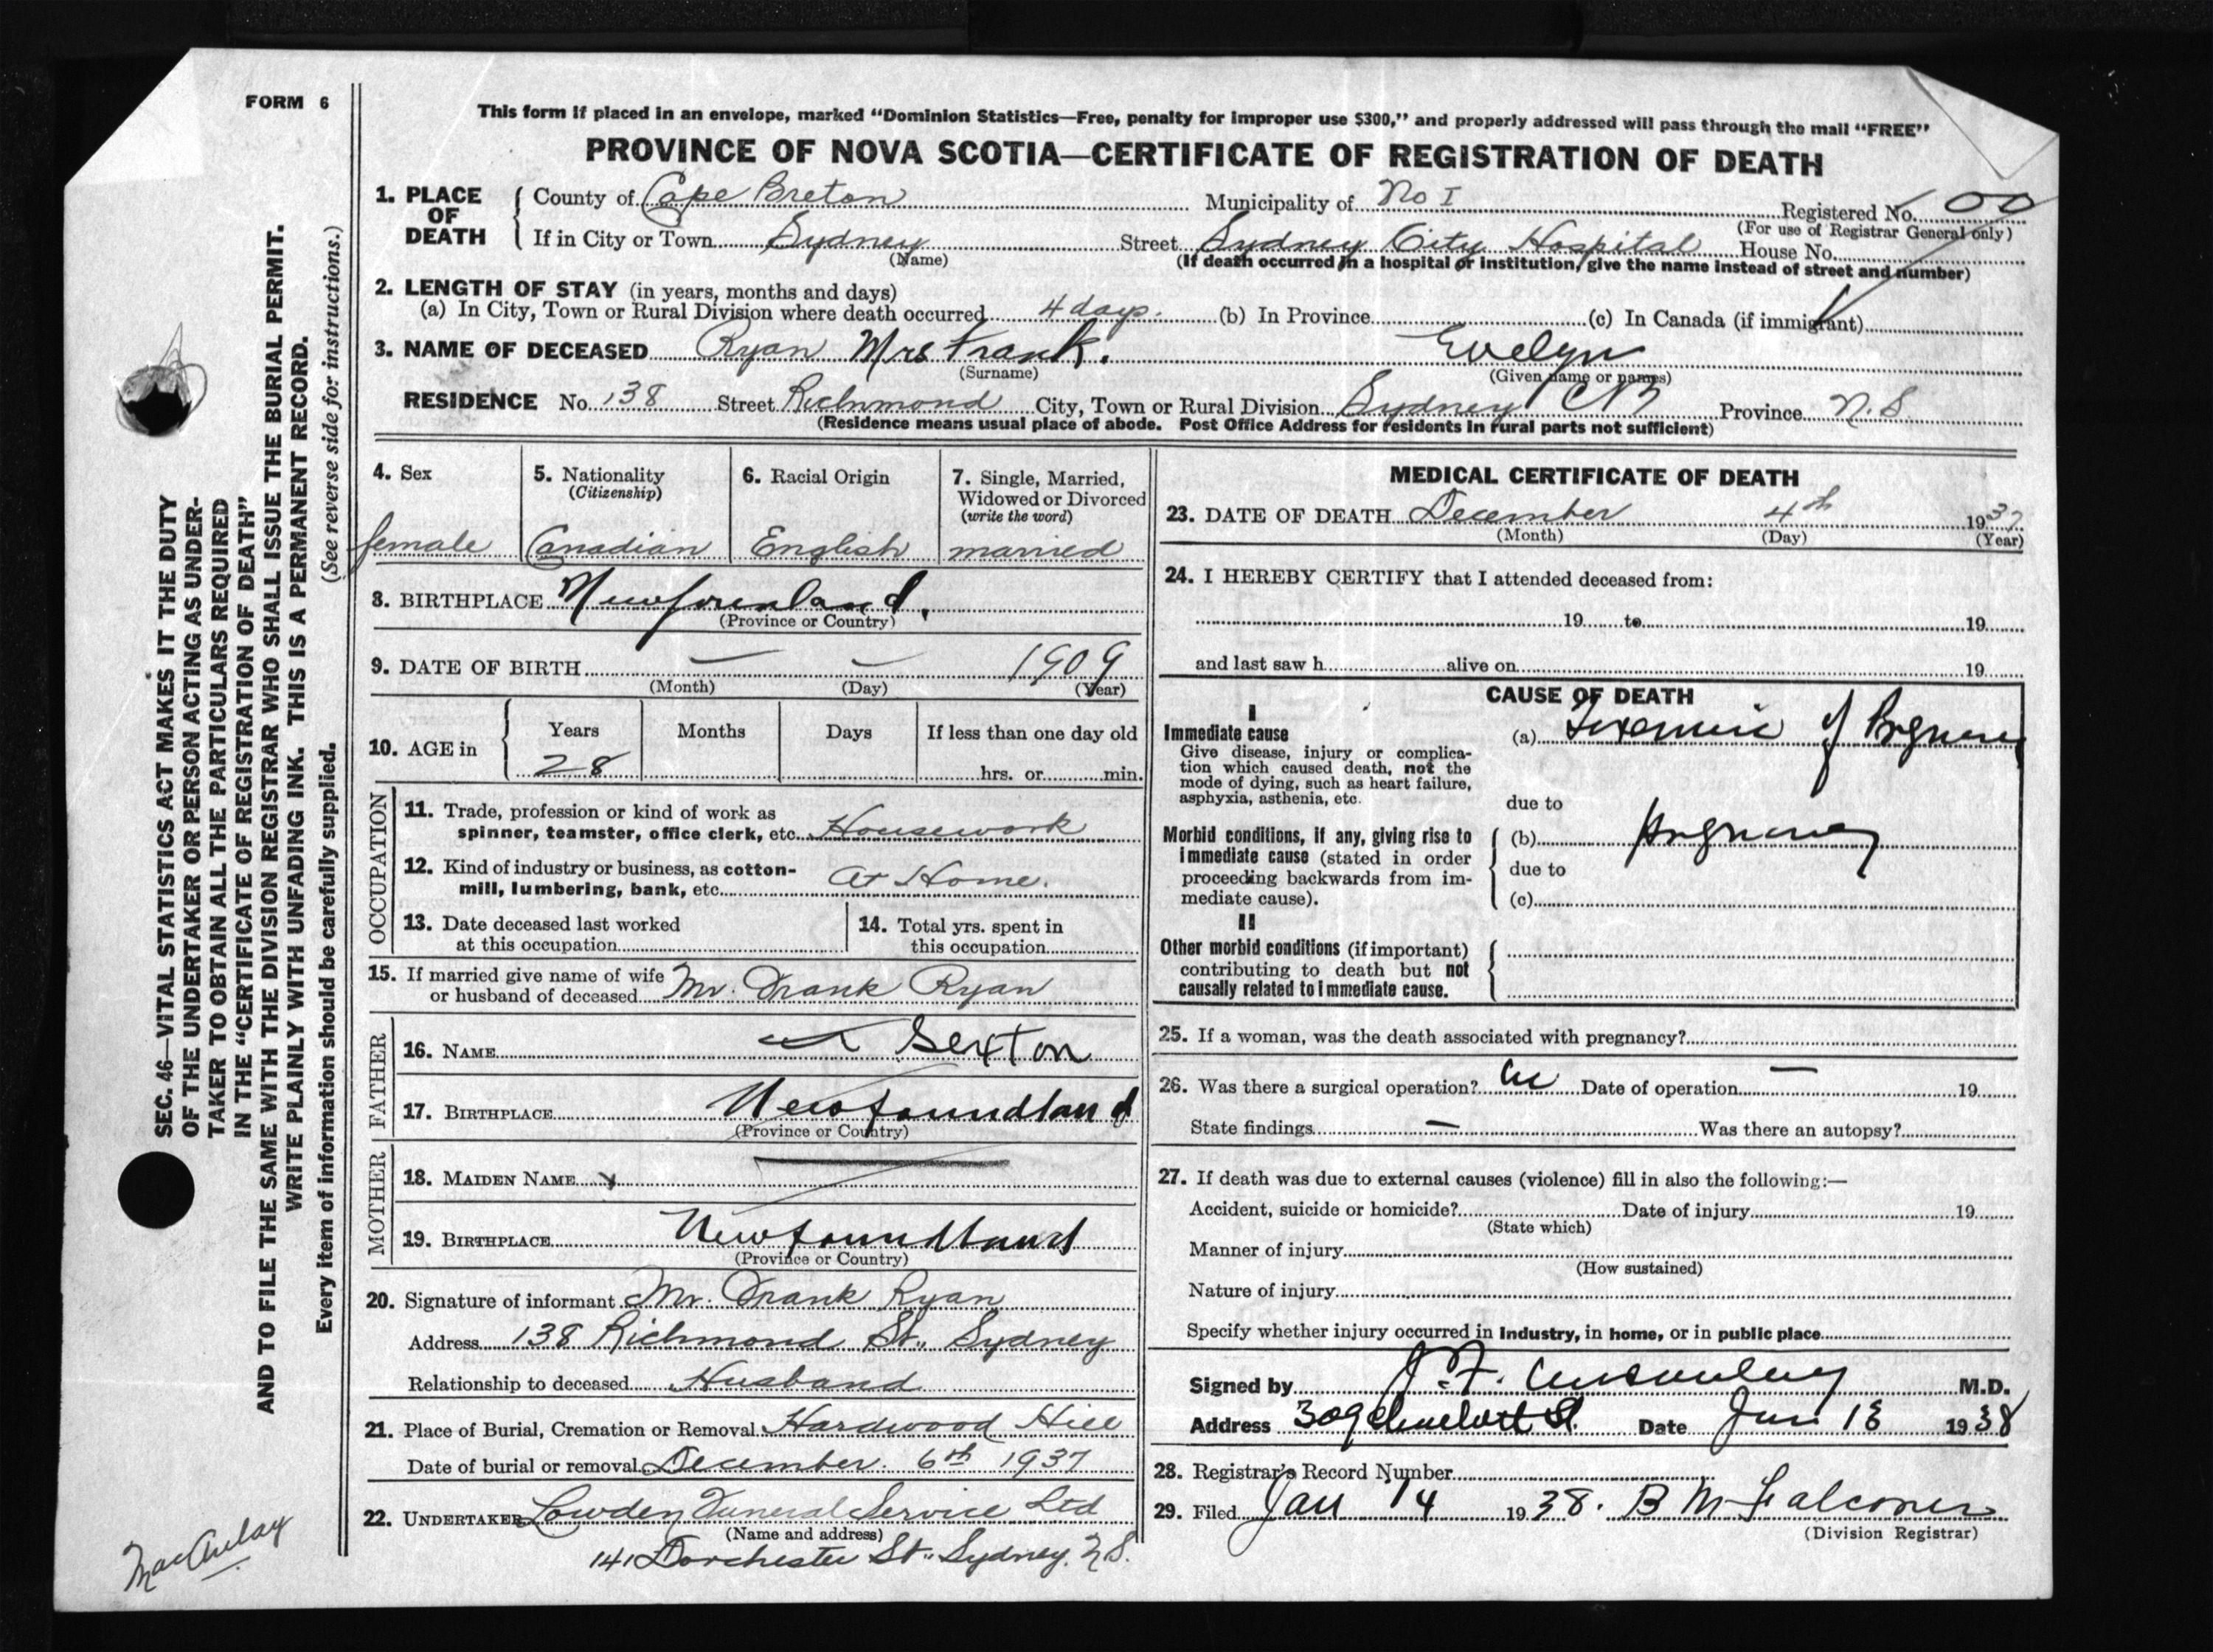 FORM 6
This form if placed in an envelope, marked “Dominion Statistics—Free, penalty for improper use $300,” and properly addressed will pass through the mail “FREE”
PROVINCE OF NOVA SCOTIA—CERTIFICATE OF REGISTRATION OF DEATH
1. PLACE OF DEATH
County of Cape Breton Municipality of No I Registered No.
(For use of Registrar General only)
If in City or Town Sydney Street Sydney City Hospital House No.
(Name) (If death occurred in a hospital or institution, give the name instead of street and number)
2. LENGTH OF STAY (in years, months and days)
(a) In City, Town or Rural Division where death occurred 4 days. (b) In Province (c) In Canada (if immigrant)
3. NAME OF DECEASED Ryan Mrs Frank. Evelyn
(Surname) (Given name or names)
RESIDENCE No. 138 Street Richmond City, Town or Rural Division Sydney CB Province N.S.
(Residence means usual place of abode. Post Office Address for residents in rural parts not sufficient)
4. Sex female
5. Nationality (Citizenship) Canadian
6. Racial Origin English
7. Single, Married, Widowed or Divorced (write the word) married
8. BIRTHPLACE Newfounland.
(Province or Country)
9. DATE OF BIRTH — — 1909
(Month) (Day) (Year)
10. AGE in Years Months Days If less than one day old
28 hrs. or min.
OCCUPATION
11. Trade, profession or kind of work as
spinner, teamster, office clerk, etc. Housework
12. Kind of industry or business, as cotton-
mill, lumbering, bank, etc. At Home.
13. Date deceased last worked
at this occupation
14. Total yrs. spent in
this occupation
15. If married give name of wife
or husband of deceased Mr. Frank Ryan
FATHER
16. NAME Sexton
17. BIRTHPLACE Newfoundland
(Province or Country)
MOTHER
18. MAIDEN NAME
19. BIRTHPLACE Newfoundland
(Province or Country)
20. Signature of informant Mr. Frank Ryan
Address 138 Richmond St., Sydney
Relationship to deceased Husband
21. Place of Burial, Cremation or Removal Hardwood Hill
Date of burial or removal December 6th 1937
22. UNDERTAKER Lowden Funeral Service Ltd
(Name and address)
141 Dorchester St., Sydney. N.S.
MEDICAL CERTIFICATE OF DEATH
23. DATE OF DEATH December 4th 1937
(Month) (Day) (Year)
24. I HEREBY CERTIFY that I attended deceased from:
19 to 19
and last saw h alive on 19
CAUSE OF DEATH
I
Immediate cause
Give disease, injury or complica-
tion which caused death, not the
mode of dying, such as heart failure,
asphyxia, asthenia, etc.
(a) Toxemia of Pregnancy
due to
Morbid conditions, if any, giving rise to
immediate cause (stated in order
proceeding backwards from im-
mediate cause).
(b) Pregnancy
due to
(c)
II
Other morbid conditions (if important)
contributing to death but not
causally related to immediate cause.
25. If a woman, was the death associated with pregnancy?
26. Was there a surgical operation? Date of operation — 19
State findings — Was there an autopsy?
27. If death was due to external causes (violence) fill in also the following:—
Accident, suicide or homicide? Date of injury 19
(State which)
Manner of injury
(How sustained)
Nature of injury
Specify whether injury occurred in industry, in home, or in public place
Signed by J. F. M.D.
Address 309 St. Date Jan 13 1938
28. Registrar's Record Number
29. Filed Jan 14 1938. B M Falconer
(Division Registrar)
SEC. 46—VITAL STATISTICS ACT MAKES IT THE DUTY
OF THE UNDERTAKER OR PERSON ACTING AS UNDER-
TAKER TO OBTAIN ALL THE PARTICULARS REQUIRED
IN THE “CERTIFICATE OF REGISTRATION OF DEATH”
AND TO FILE THE SAME WITH THE DIVISION REGISTRAR WHO SHALL ISSUE THE BURIAL PERMIT.
WRITE PLAINLY WITH UNFADING INK. THIS IS A PERMANENT RECORD.
Every item of information should be carefully supplied. (See reverse side for instructions.)
MacAulay